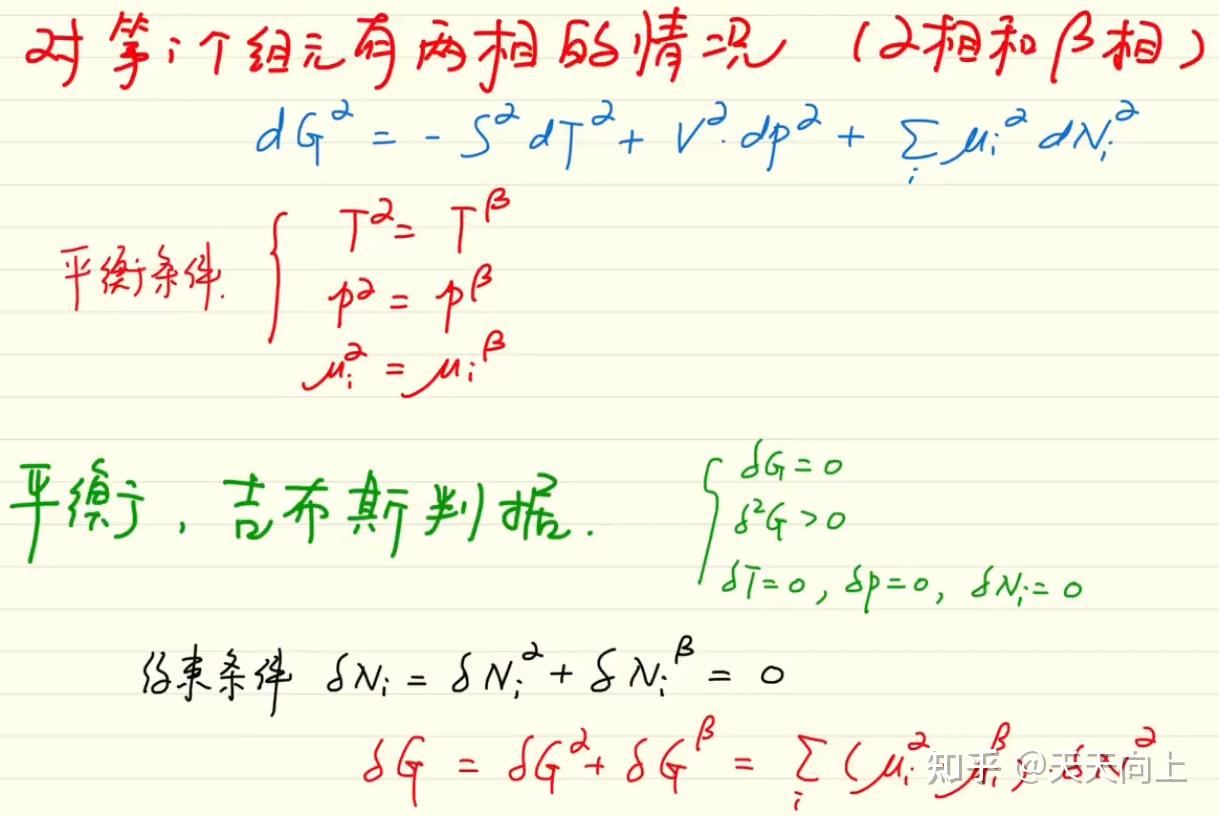 对第i个组元有两相的情况 (α相和β相)
dG^α = - S^α dT^α + V^α·dp^α + Σ_i μ_i^α dN_i^α
平衡条件. { T^α = T^β
p^α = p^β
μ_i^α = μ_i^β
平衡, 吉布斯判据. { δG = 0
δ²G > 0
δT = 0, δp = 0, δN_i = 0
约束条件 δN_i = δN_i^α + δN_i^β = 0
δG = δG^α + δG^β = Σ_i (μ_i^α μ_i^β) δN^α
知乎 @天天向上